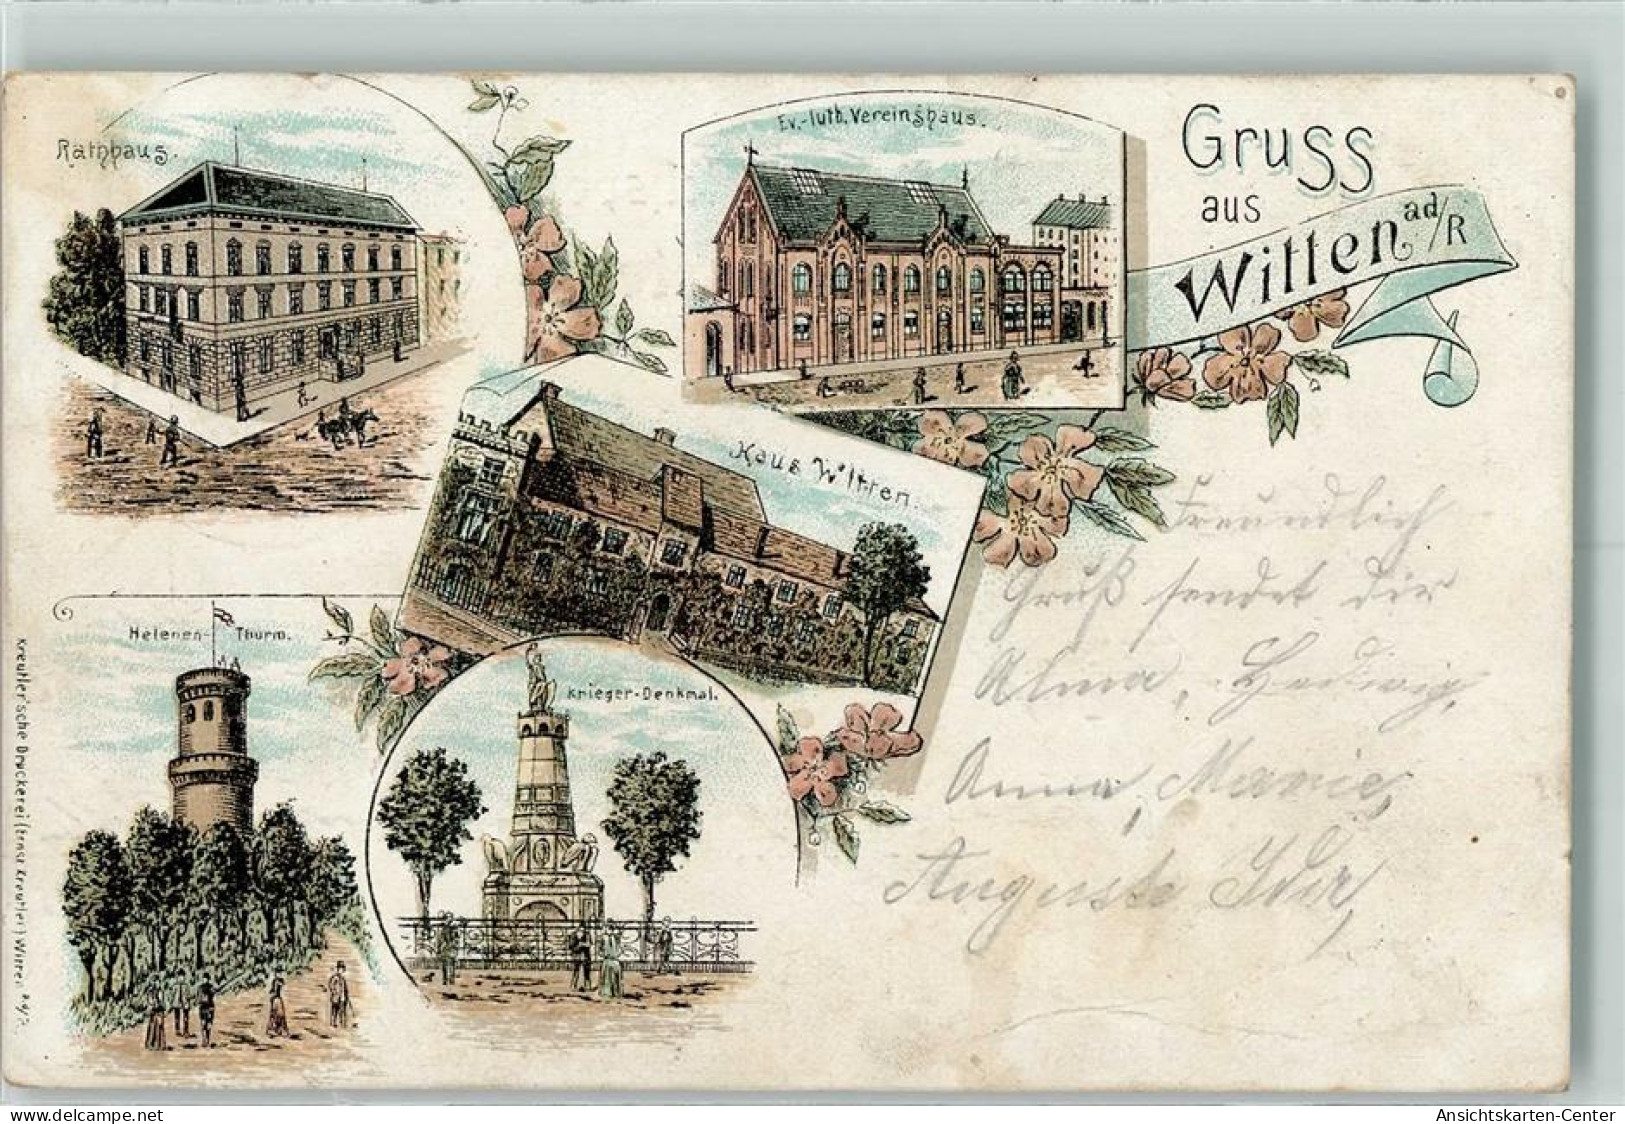 Rathhaus.
Ev.-luth. Vereinshaus.
Gruss
aus
Witten ad/R
Haus Witten.
Helenen-Thurm.
Krieger-Denkmal.
Kreutler'sche Druckerei (Ernst Kreutler) Witten a/d/R.
Freundlich
Gruß sendet dir
Alma, Hedwig,
Anna, Marie,
Auguste
delcampe.net
Ansichtskarten-Center